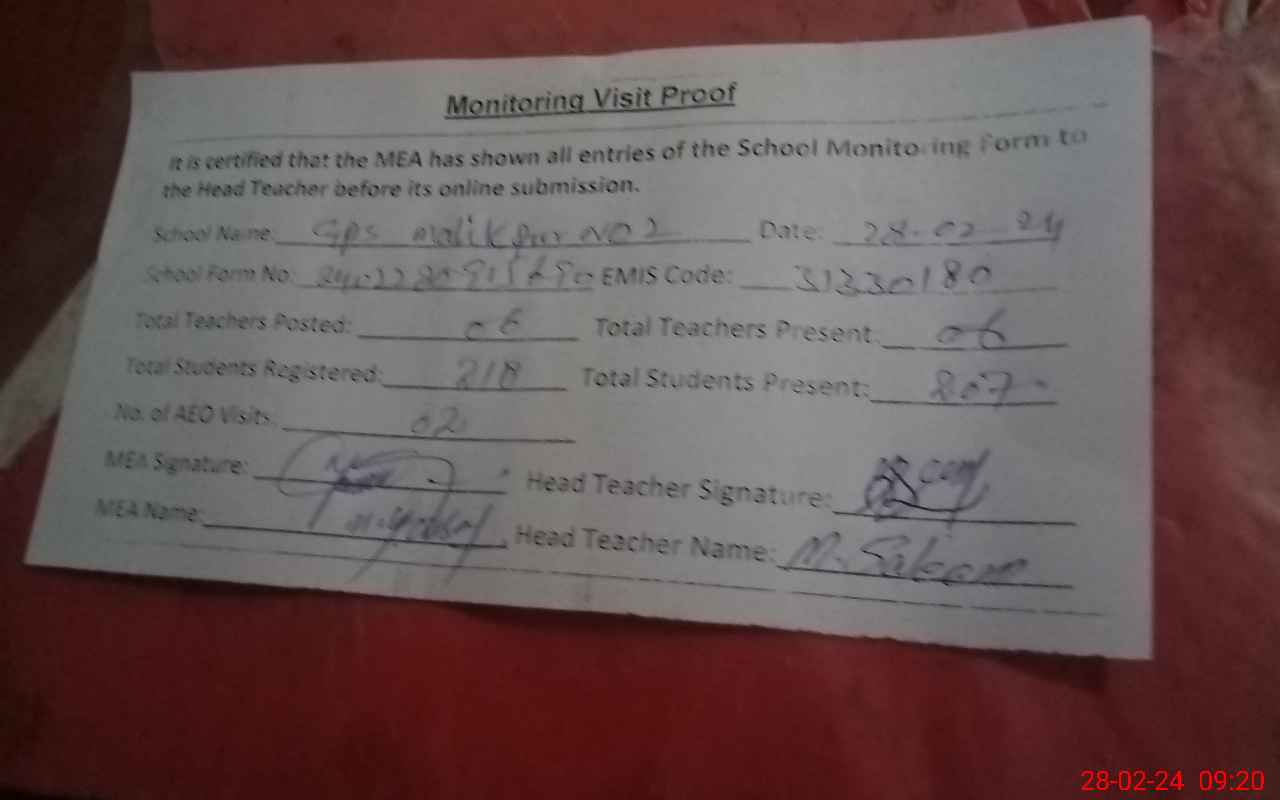 Monitoring Visit Proof
It is certified that the MEA has shown all entries of the School Monitoring Form to
the Head Teacher before its online submission.
School Name: GPS malikpur NO 2 Date: 28-02-24
School Form No: EMIS Code: 31330180
Total Teachers Posted: 06 Total Teachers Present: 06
Total Students Registered: 218 Total Students Present: 207
No. of AEO Visits: 02
MEA Signature: Head Teacher Signature:
MEA Name: Head Teacher Name: M. Saleem
28-02-24 09:20